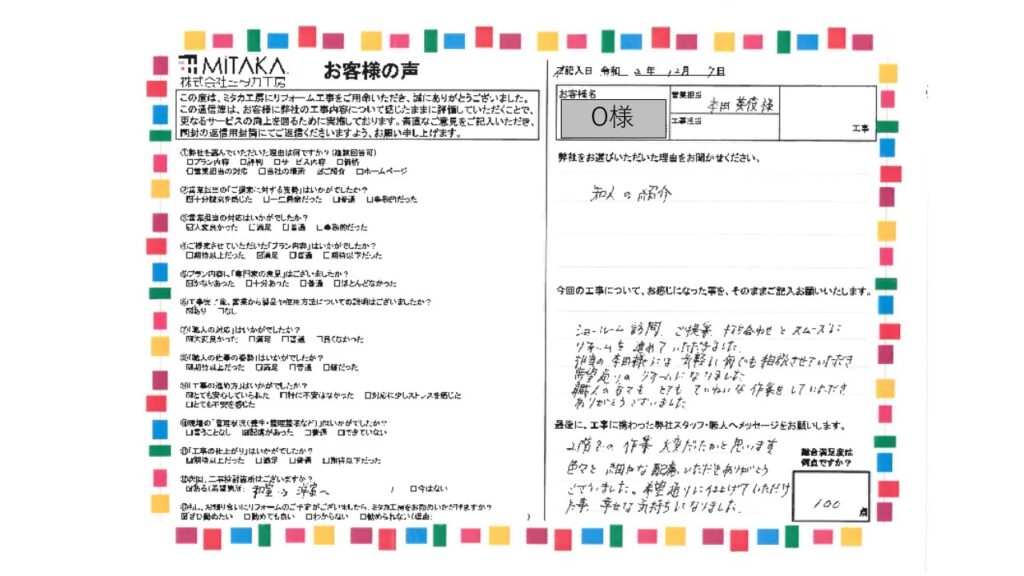 MiTAKA
株式会社ミタカ工房
お客様の声
この度は、ミタカ工房にリフォーム工事をご用命いただき、誠にありがとうございました。
この通信簿は、お客様に弊社の工事内容について感じたままに評価していただくことで、
更なるサービスの向上を図るために実施しております。素直なご意見をご記入いただき、
同封の返信用封筒にてご返信くださいますよう、お願い申し上げます。
①弊社を選んでいただいた理由は何ですか?(複数回答可)
□プラン内容 □評判 □サービス内容 □価格
□営業担当の対応 □当社の場所 ☑ご紹介 □ホームページ
②営業担当の「ご提案に対する姿勢」はいかがでしたか?
☑十分誠意を感じた □一生懸命だった □普通 □事務的だった
③営業担当の対応はいかがでしたか?
☑大変良かった □満足 □普通 □事務的だった
④ご提案させていただいた「プラン内容」はいかがでしたか?
□期待以上だった ☑満足 □普通 □期待以下だった
⑤プラン内容に「専門家の意見」はございましたか?
☑かなりあった □十分あった □普通 □ほとんどなかった
⑥工事完了後、営業から留意や使用方法についての説明はございましたか?
☑あり □なし
⑦「職人の対応」はいかがでしたか?
☑大変良かった □満足 □普通 □良くなかった
⑧「職人の仕事の姿勢」はいかがでしたか?
☑期待以上だった □満足 □普通 □雑だった
⑨「工事の進め方」はいかがでしたか?
☑とても安心していられた □特に不安はなかった □対応に少しストレスを感じた
□とても不安を感じた
⑩現場の「管理状況(養生・整理整頓など)」はいかがでしたか?
□言うことなし ☑配慮があった □普通 □できていない
⑪「工事の仕上がり」はいかがでしたか?
☑期待以上だった □満足 □普通 □期待以下だった
⑫次回、二期検討箇所はございますか?
☑ある(希望箇所: 和室→洋室へ ) □今はない
⑬もし、お知り合いにリフォームのご予定がございましたら、ミタカ工房をお勧めいただけますか?
☑ぜひ勧めたい □勧めても良い □わからない □勧められない(理由: )
ご記入日 令和 2年 12月 7日
お客様名
O様
営業担当
本田 英俊 様
工事担当
工事
弊社をお選びいただいた理由をお聞かせください。
知人の紹介
今回の工事について、お感じになった事を、そのままご記入お願いいたします。
ショールーム訪問、ご提案、打ち合わせとスムーズに
リフォームを進めていただきました。
担当の本田様には気軽に何でも相談させていただき
希望通りのリフォームになりました。
職人の方々もとてもていねいな作業をしていただき
ありがとうございました。
最後に、工事に携わった弊社スタッフ・職人へメッセージをお願いします。
2階での作業大変だったかと思います
色々と細かな配慮いただきありがとう
ございました。希望通りに仕上げていただけ
た事、幸せな気持ちになりました。
総合満足度は
何点ですか?
100 点